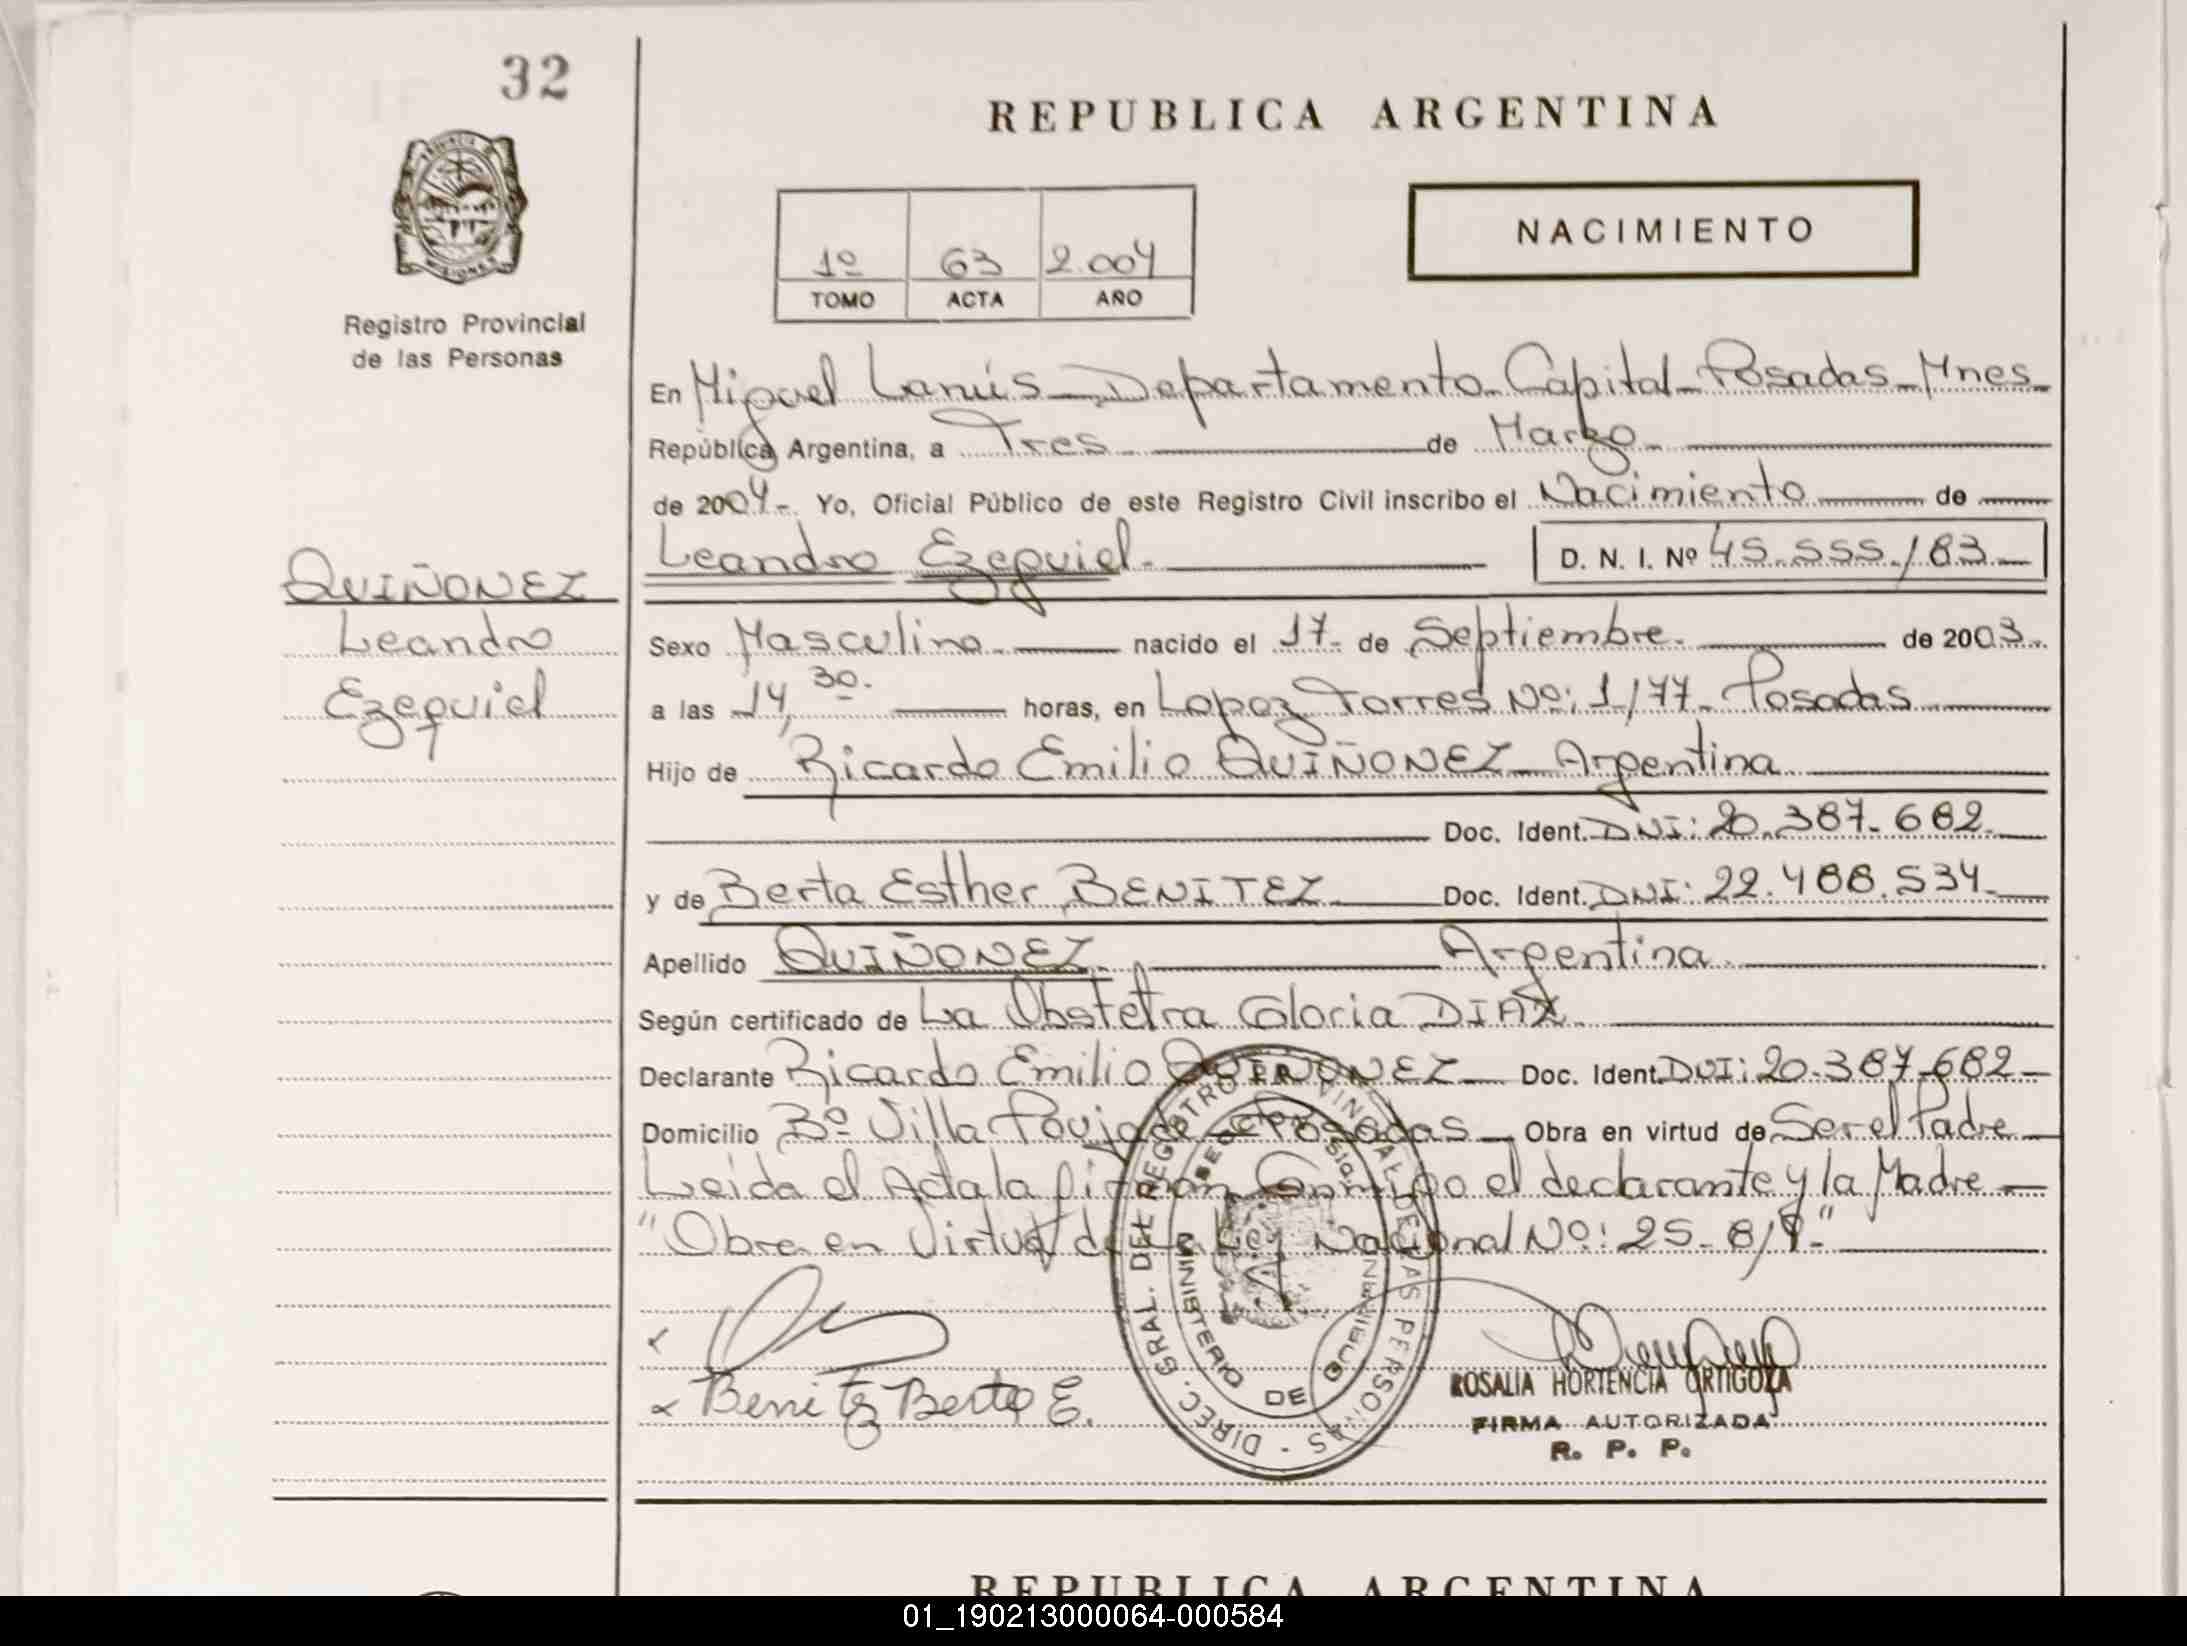 32
REPUBLICA ARGENTINA
NACIMIENTO
1º 63 2.004
TOMO ACTA AÑO
Registro Provincial
de las Personas
En Miguel Lanús - Departamento Capital - Posadas - Mnes
República Argentina, a Tres de Marzo
de 2004 - Yo, Oficial Público de este Registro Civil inscribo el Nacimiento de
Leandro Ezequiel. D. N. I. Nº 45.555./83
QUIÑONEZ
Leandro
Ezequiel
Sexo Masculino nacido el 17 de Septiembre de 2003
a las 14,30 horas, en Lopez Torres Nº: 1/77 - Posadas
Hijo de Ricardo Emilio QUIÑONEZ - Argentina
Doc. Ident. DNI: 20.387.682
y de Berta Esther BENITEZ Doc. Ident. DNI: 22.488.534
Apellido QUIÑONEZ Argentina
Según certificado de La Obstetra Gloria DIAZ
Declarante Ricardo Emilio QUIÑONEZ Doc. Ident. DNI: 20.387.682
Domicilio Bº Villa Poujade - Posadas Obra en virtud de Ser el Padre
Leida el Acta la firman Conmigo el declarante y la Madre
"Obra en Virtud de la Ley Nacional Nº: 25.8/9"
Benitez Berta E.
DIREC. GRAL. DEL REGISTRO PROVINCIAL DE LAS PERSONAS
MINISTERIO DE GOBIERNO
ROSALIA HORTENCIA ORTIGOZA
FIRMA AUTORIZADA
R. P. P.
REPUBLICA ARGENTINA
01_190213000064-000584